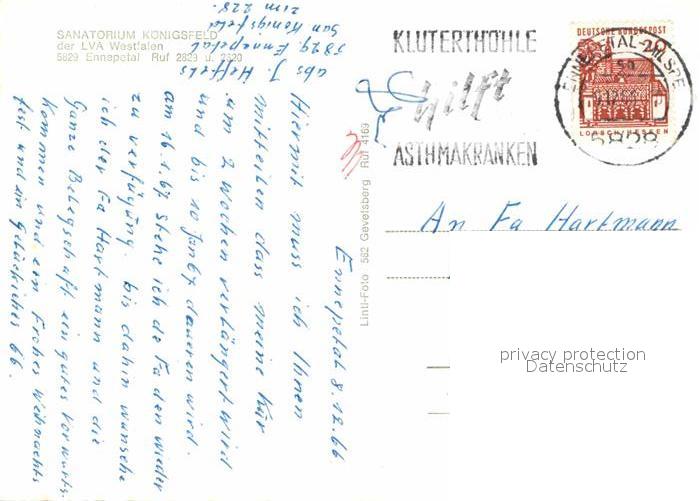 SANATORIUM KÖNIGSFELD
der LVA Westfalen
5829 Ennepetal Ruf 2829 u. 2820
abs J. Heffels
5829. Ennepetal
San Königsfeld
Zim 228.
Ennepetal 8.12.66
Hiermit muss ich Ihnen
mitteilen dass meine Kur
um 2 Wochen verlängert wird
und bis 10 Jan 67 daueren wird.
am 16.1.67 stehe ich de Fa den wieder
zu verfügung. bis dahin wünsche
ich der Fa Hartmann und die
Ganze Belegschaft ein gutes Vorwärts
kommen und ein Frohes Weihnachts
fest und ein Glückliches 66.
Linti-Foto 582 Gevelsberg Ruf 4169
KLUTERTHÖHLE
hilft
ASTHMAKRANKEN
DEUTSCHE BUNDESPOST
LORSCH/HESSEN
ENNEPETAL-MILSPE
5828
An Fa Hartmann
privacy protection
Datenschutz